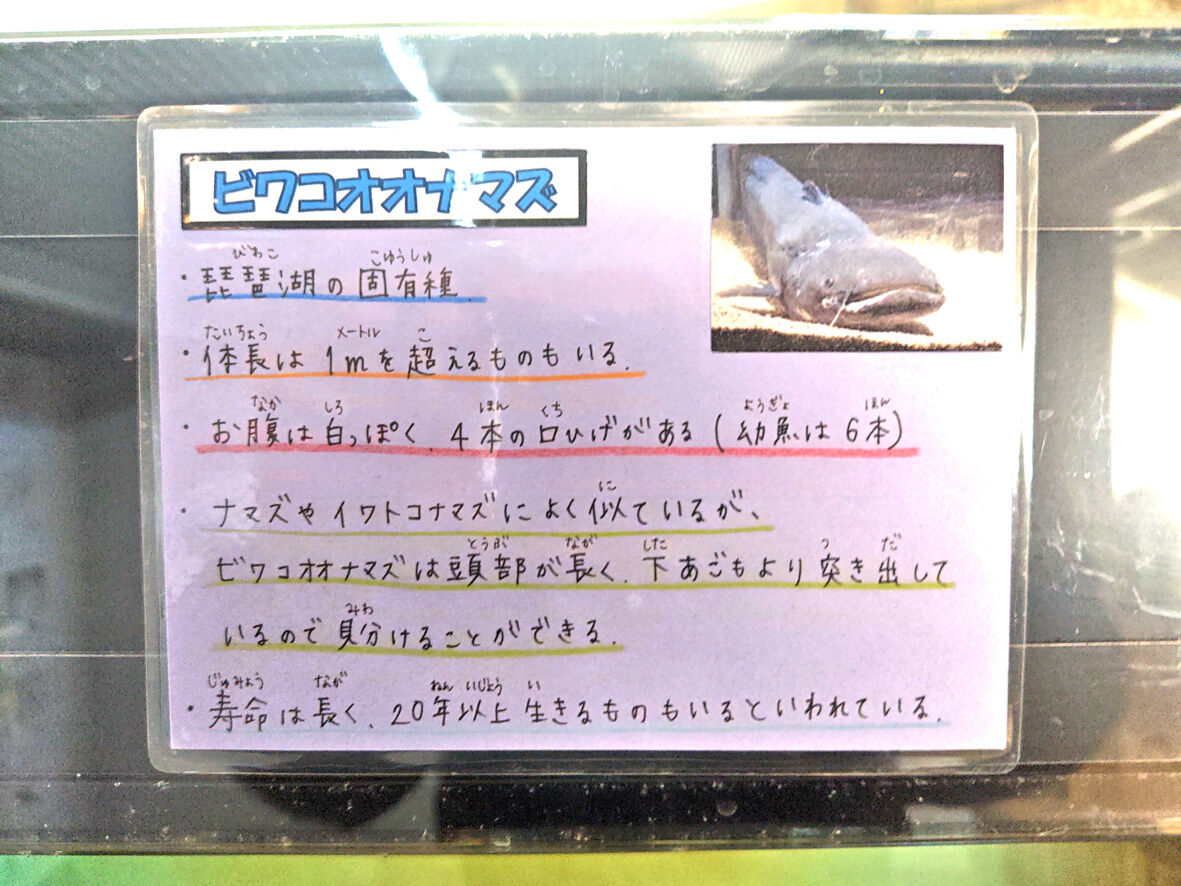 ビワコオオナマズ
びわこ こゆうしゅ
・琵琶湖の固有種
たいちょう メートル こ
・体長は1mを超えるものもいる.
なか しろ ほん くち ようぎょ ほん
・お腹は白っぽく、4本の口ひげがある(幼魚は6本)
に
・ナマズやイワトコナマズによく似ているが、
とうぶ なが した つ だ
ビワコオオナマズは頭部が長く、下あごもより突き出して
みわ
いるので見分けることができる.
じゅみょう なが ねん いじょう い
・寿命は長く、20年以上生きるものもいるといわれている.